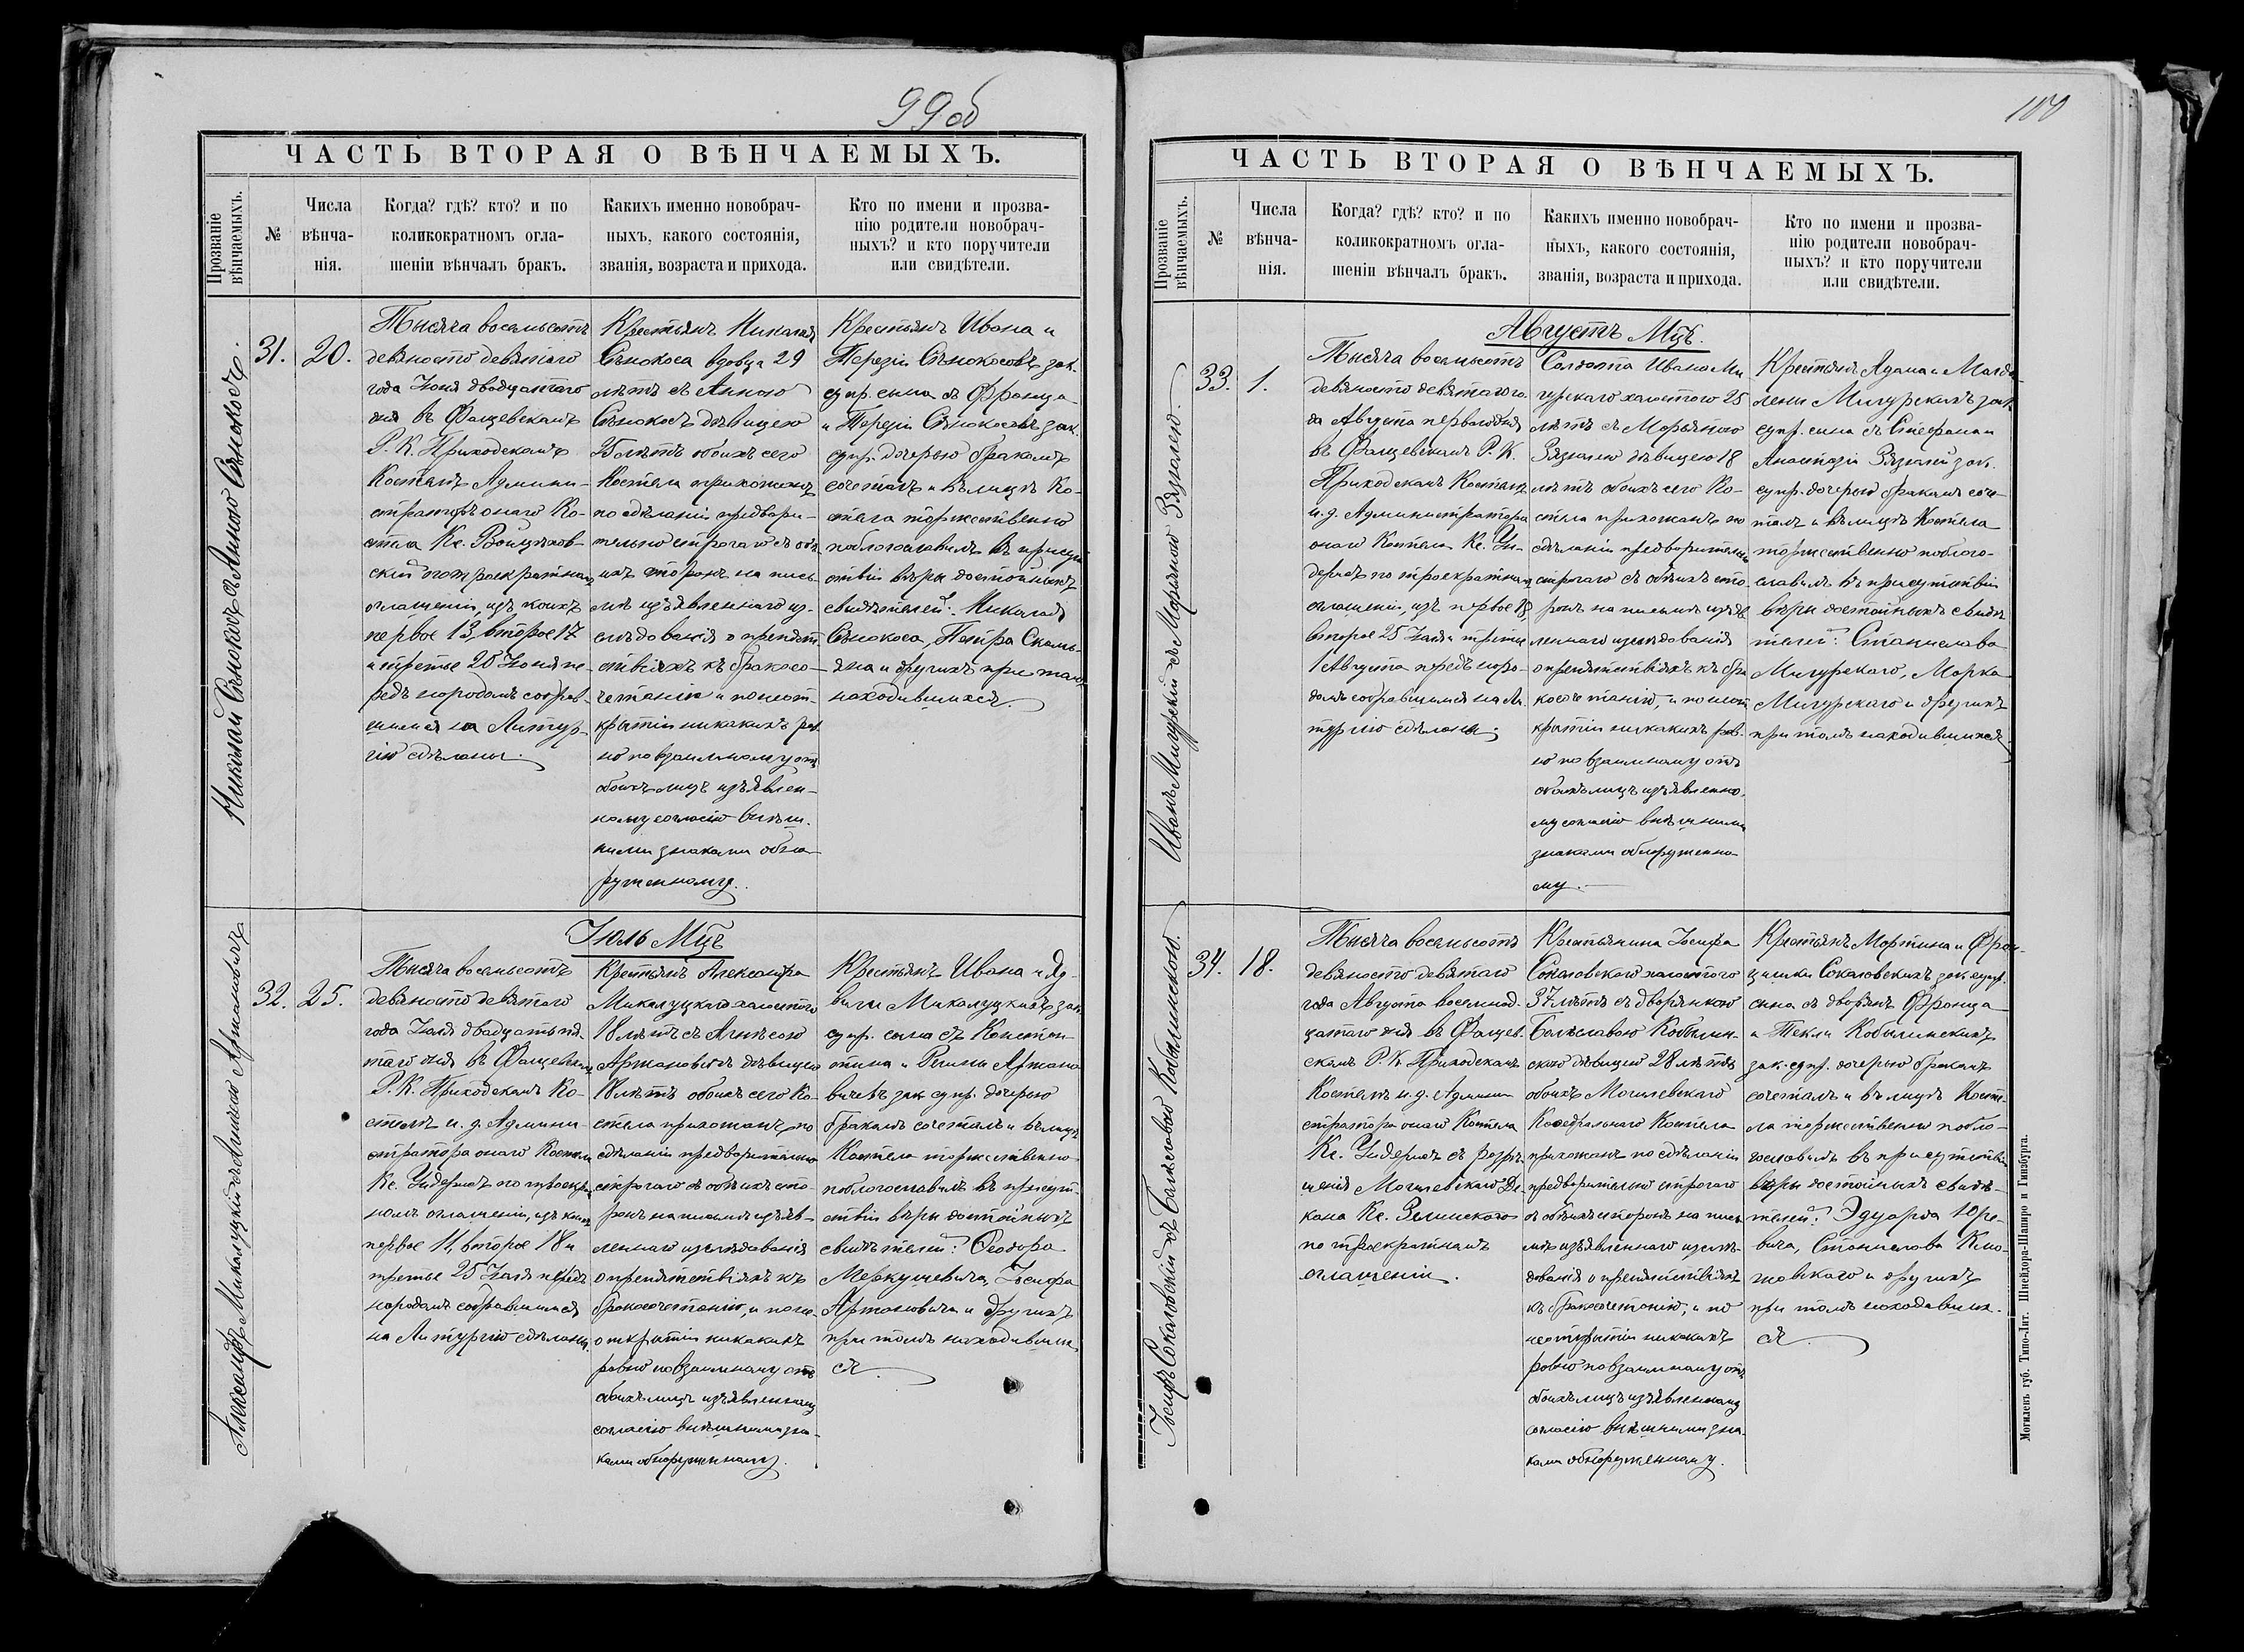 99об
ЧАСТЬ ВТОРАЯ О ВѢНЧАЕМЫХЪ.
Прозваніе
вѣнчаемыхъ.
№
Числа
вѣнча-
нія.
Когда? гдѣ? кто? и по
коликократномъ огла-
шеніи вѣнчалъ бракъ.
Какихъ именно новобрач-
ныхъ, какого состоянія,
званія, возраста и прихода.
Кто по имени и прозва-
нію родители новобрач-
ныхъ? и кто поручители
или свидѣтели.
Николай Сѣнокосъ съ Анною Сѣнокосъ.
31.
20.
Тысяча восемьсотъ
девяносто девятаго
года Іюня двадцатаго
дня въ Фащевскомъ
Р. К. Приходскомъ
Костелѣ Админи-
страторъ онаго Ко-
стела Кс. Войцѣхов-
скій по троекратномъ
оглашеніи, изъ коихъ
первое 13, второе 17
и третье 20 Іюня пе-
редъ народомъ собрав-
шимся на Литур-
гію сдѣланы.
Крестьянъ Николая
Сѣнокоса вдовца 29
лѣтъ съ Анною
Сѣнокосъ дѣвицею
лѣтъ обоихъ сего
Костела прихожанъ
по сдѣланіи предвари-
тельно строгаго съ обѣ-
ихъ сторонъ на пись-
мѣ изъявленнаго из-
слѣдованія о препят-
ствіяхъ къ бракосо-
четанію и по неот-
крытіи никакихъ рав-
но по взаимному отъ
обоихъ лицъ изъявлен-
ному согласію внѣш-
ними знаками обна-
руженному.
Крестьянъ Ивана и
Терезіи Сѣнокосовъ зак.
супр. сына съ Франца
и Терезіи Сѣнокосовъ зак.
супр. дочерью бракомъ
сочеталъ и въ лицѣ Ко-
стела торжественно
поблагословилъ въ присут-
ствіи вѣры достойныхъ
свидѣтелей: Николая
Сѣнокоса, Петра
и другихъ при томъ
находившихся.
Іюль Мцъ
Александръ Миколуцкій съ Армановичъ
32.
25.
Тысяча восемьсотъ
девяносто девятаго
года Іюля двадцать пя-
таго дня въ Фащевскомъ
Р. К. Приходскомъ Ко-
стелѣ и. д. Админи-
стратора онаго Костела
Кс. по троекрат-
номъ оглашеніи, изъ коихъ
первое 11, второе 18 и
третье 25 Іюля передъ
народомъ собравшимся
на Литургію сдѣланы.
Крестьянъ Александра
Миколуцкаго холостого
18 лѣтъ съ
Армановичъ дѣвицею
18 лѣтъ обоихъ сего Ко-
стела прихожанъ по
сдѣланіи предварительно
строгаго съ обѣихъ сто-
ронъ на письмѣ изъяв-
леннаго изслѣдованія
о препятствіяхъ къ
бракосочетанію, и по не-
открытіи никакихъ
равно по взаимному отъ
обоихъ лицъ изъявленному
согласію внѣшними зна-
ками обнаруженному.
Крестьянъ Ивана и Яд-
виги Миколуцкихъ зак.
супр. сына съ Констан-
тина и Регины Армано-
вичевъ зак. супр. дочерью
бракомъ сочеталъ и въ лицѣ
Костела торжественно
поблагословилъ въ присут-
ствіи вѣры достойныхъ
свидѣтелей: Ѳеодора
Меркушевича, Іосифа
Армановича и другихъ
при томъ находивших-
ся.
100
ЧАСТЬ ВТОРАЯ О ВѢНЧАЕМЫХЪ.
Прозваніе
вѣнчаемыхъ.
№
Числа
вѣнча-
нія.
Когда? гдѣ? кто? и по
коликократномъ огла-
шеніи вѣнчалъ бракъ.
Какихъ именно новобрач-
ныхъ, какого состоянія,
званія, возраста и прихода.
Кто по имени и прозва-
нію родители новобрач-
ныхъ? и кто поручители
или свидѣтели.
Августъ Мцъ.
Иванъ Мигурскій съ Марьяною Зязюлею.
33.
1.
Тысяча восемьсотъ
девяносто девятаго го-
да Августа перваго дня
въ Фащевскомъ Р. К.
Приходскомъ Костелѣ
и. д. Администратора
онаго Костела Кс.
по троекратномъ
оглашеніи, изъ первое 18,
второе 25 Іюля и третье
1 Августа передъ наро-
домъ собравшимся на Ли-
тургію сдѣланы.
Солдата Ивана Ми-
гурскаго холостого 25
лѣтъ съ Марьяною
Зязюлею дѣвицею 18
лѣтъ обоихъ сего Ко-
стела прихожанъ по
сдѣланіи предварительно
строгаго съ обѣихъ сто-
ронъ на письмѣ изъяв-
леннаго изслѣдованія
о препятствіяхъ къ бра-
косочетанію, и по неот-
крытіи никакихъ рав-
но по взаимному отъ
обоихъ лицъ изъявленно-
му согласію внѣшними
знаками обнаруженно-
му.
Крестьянъ Адама и Магда-
лены Мигурскихъ зак.
супр. сына съ Стефана и
Анастазіи Зязюлей зак.
супр. дочерью бракомъ соче-
талъ и въ лицѣ Костела
торжественно поблаго-
словилъ въ присутствіи
вѣры достойныхъ свидѣ-
телей: Станислава
Мигурскаго, Марка
Мигурскаго и другихъ
при томъ находившихся.
Іосифъ Соколовскій съ Болеславою Кобылинскою.
34.
18.
Тысяча восемьсотъ
девяносто девятаго
года Августа восемнад-
цатаго дня въ Фащев-
скомъ Р. К. Приходскомъ
Костелѣ и. д. Админи-
стратора онаго Костела
Кс. съ разрѣ-
шенія Могилевскаго Де-
кана Кс. Зелинскаго
по троекратномъ
оглашеніи.
Крестьянина Іосифа
Соколовскаго холостого
37 лѣтъ съ дворянкою
Болеславою Кобылин-
скою дѣвицею 28 лѣтъ
обоихъ Могилевскаго
Каѳедральнаго Костела
прихожанъ по сдѣланіи
предварительно строгаго
съ обѣихъ сторонъ на пись-
мѣ изъявленнаго изслѣ-
дованія о препятствіяхъ
къ бракосочетанію, и по
неоткрытіи никакихъ
равно по взаимному отъ
обоихъ лицъ изъявленному
согласію внѣшними зна-
ками обнаруженному.
Крестьянъ Мартина и Фран-
цишки Соколовскихъ зак. супр.
сына съ дворянъ Франца
и Теклы Кобылинскихъ
зак. супр. дочерью бракомъ
сочеталъ и въ лицѣ Косте-
ла торжественно побла-
гословилъ въ присутствіи
вѣры достойныхъ свидѣ-
телей: Эдуарда Юре-
вича, Станислава
и другихъ
при томъ находивших-
ся
Могилевъ губ. Типо-Лит. Шнейдора-Шапиро и Гинзбурга.